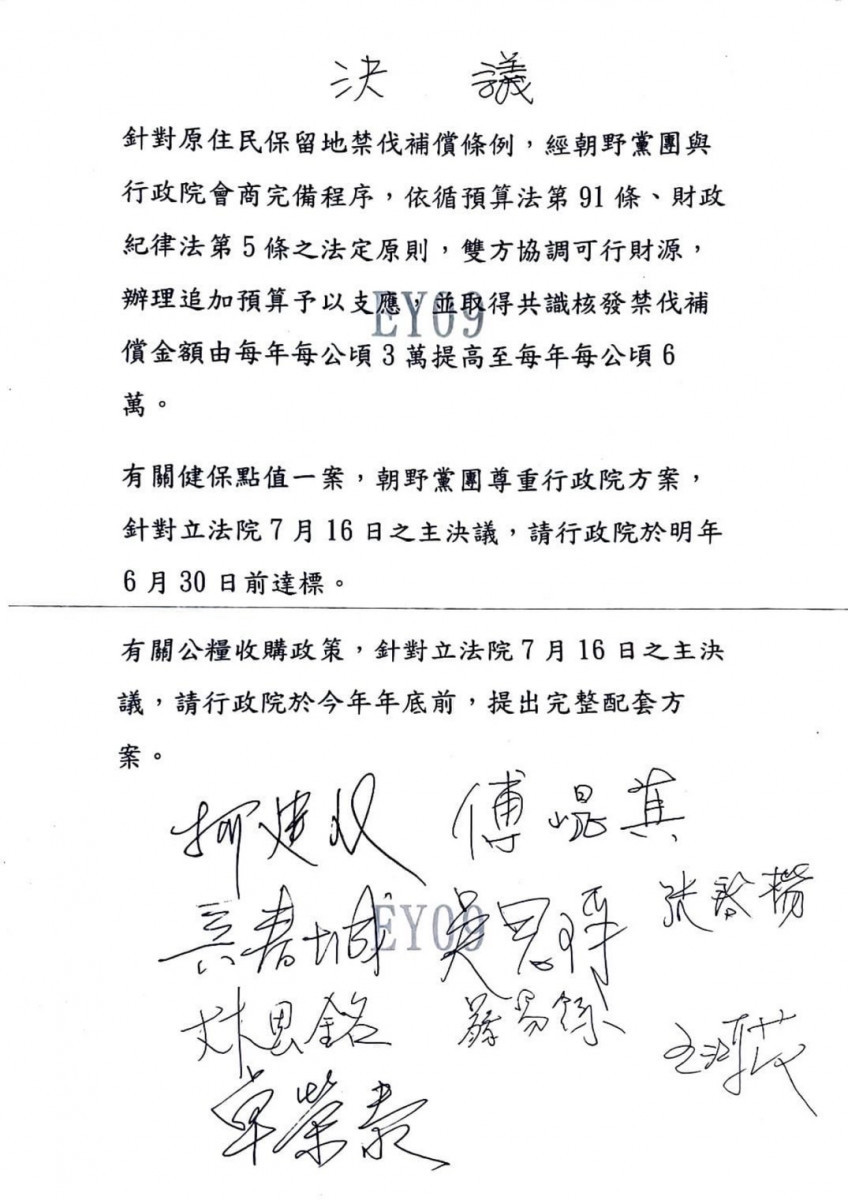 決 議
針對原住民保留地禁伐補償條例，經朝野黨團與
行政院會商完備程序，依循預算法第 91 條、財政
紀律法第 5 條之法定原則，雙方協調可行財源，
辦理追加預算予以支應，並取得共識核發禁伐補
償金額由每年每公頃 3 萬提高至每年每公頃 6
萬。
有關健保點值一案，朝野黨團尊重行政院方案，
針對立法院 7 月 16 日之主決議，請行政院於明年
6 月 30 日前達標。
有關公糧收購政策，針對立法院 7 月 16 日之主決
議，請行政院於今年年底前，提出完整配套方
案。
EY09
柯建 傅崐萁
張啓楷
吳春城 吳思瑤
EY09
林思銘 羅
卓榮泰